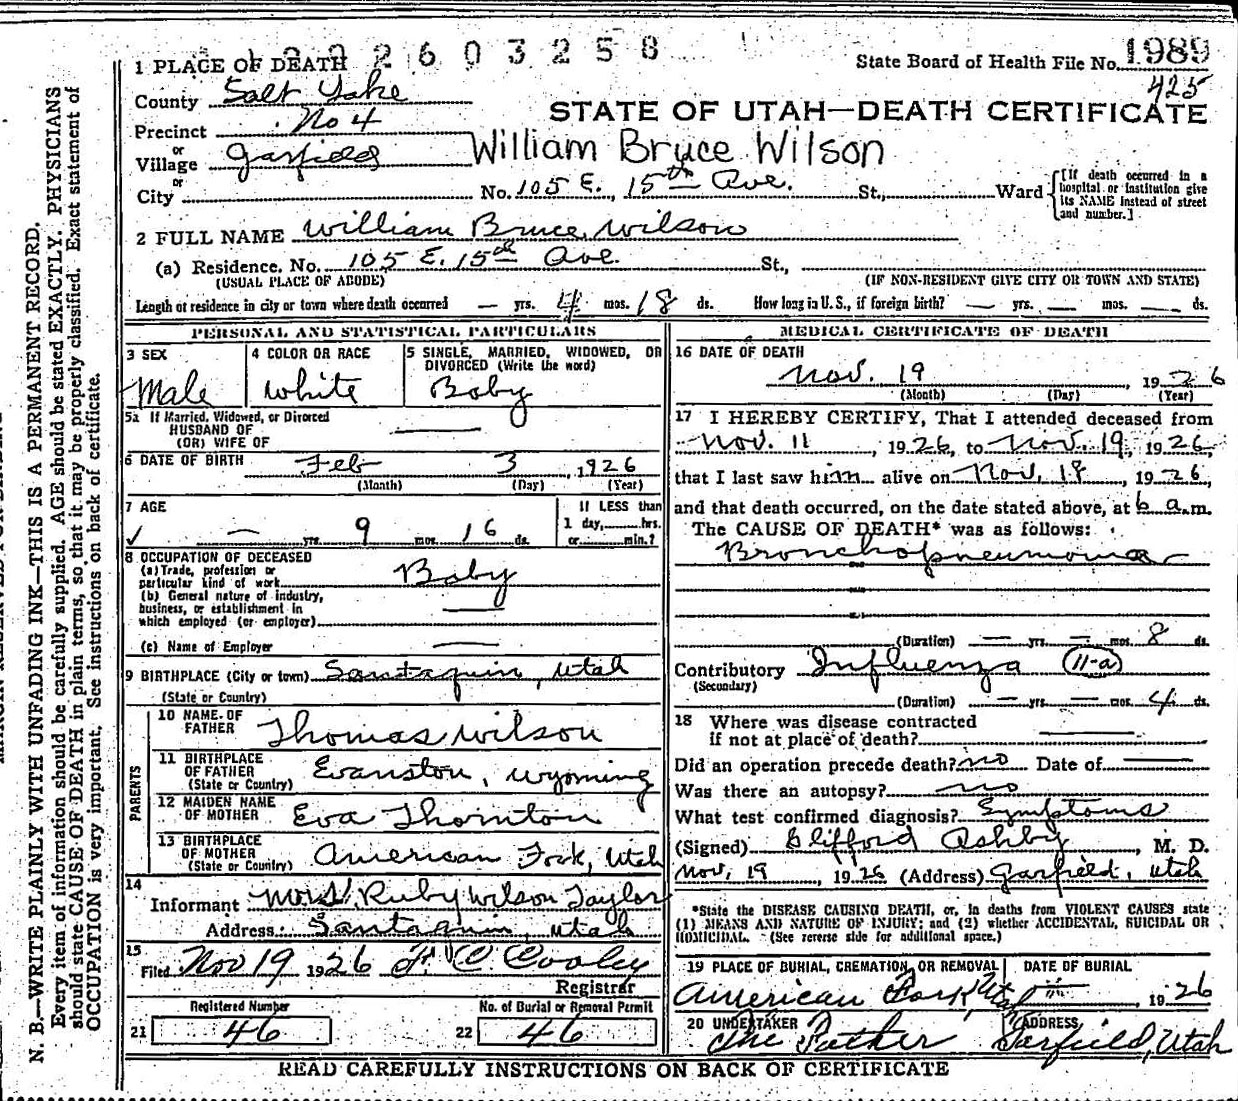 2603258
State Board of Health File No. 1989
425
1 PLACE OF DEATH
County Salt Lake
STATE OF UTAH—DEATH CERTIFICATE
Precinct No 4
or
Village Garfield
William Bruce Wilson
or
City
No. 105 E. 15th Ave. St., Ward
[If death occurred in a hospital or institution give its NAME instead of street and number.]
2 FULL NAME William Bruce Wilson
(a) Residence. No. 105 E. 15th Ave. St.,
(USUAL PLACE OF ABODE) (IF NON-RESIDENT GIVE CITY OR TOWN AND STATE)
Length of residence in city or town where death occurred — yrs. 4 mos. 18 ds. How long in U.S., if foreign birth? — yrs. — mos. — ds.
PERSONAL AND STATISTICAL PARTICULARS
3 SEX
Male
4 COLOR OR RACE
White
5 SINGLE, MARRIED, WIDOWED, OR
DIVORCED (Write the word)
Baby
5a If Married, Widowed, or Divorced
HUSBAND OF
(OR) WIFE OF
6 DATE OF BIRTH Feb 3, 1926
(Month) (Day) (Year)
7 AGE
— yrs. 9 mos. 16 ds.
If LESS than
1 day, hrs.
or min.?
8 OCCUPATION OF DECEASED
(a) Trade, profession or
particular kind of work Baby
(b) General nature of industry,
business, or establishment in
which employed (or employer)
(c) Name of Employer
9 BIRTHPLACE (City or town) Santaquin, Utah
(State or Country)
PARENTS
10 NAME OF
FATHER Thomas Wilson
11 BIRTHPLACE
OF FATHER Evanston, Wyoming
(State or Country)
12 MAIDEN NAME
OF MOTHER Eva Thornton
13 BIRTHPLACE
OF MOTHER American Fork, Utah
(State or Country)
14
Informant Mrs. Ruby Wilson Taylor
Address: Santaquin, Utah
15
Filed Nov 19 1926 C. Cooley
Registrar
Registered Number
21 46
No. of Burial or Removal Permit
22 46
MEDICAL CERTIFICATE OF DEATH
16 DATE OF DEATH
Nov. 19, 1926
(Month) (Day) (Year)
17 I HEREBY CERTIFY, That I attended deceased from
Nov. 11, 1926, to Nov. 19, 1926,
that I last saw him alive on Nov. 18, 1926,
and that death occurred, on the date stated above, at 6 a.m.
The CAUSE OF DEATH* was as follows:
Bronchopneumonia
(Duration) — yrs. — mos. 8 ds.
Contributory Influenza 11-a
(Secondary)
(Duration) — yrs — mos. 4 ds.
18 Where was disease contracted
if not at place of death?
Did an operation precede death? no Date of
Was there an autopsy? no
What test confirmed diagnosis? Symptoms
(Signed) Clifford Ashby, M. D.
Nov. 19, 1926 (Address) Garfield, Utah
*State the DISEASE CAUSING DEATH, or, in deaths from VIOLENT CAUSES state
(1) MEANS AND NATURE OF INJURY; and (2) whether ACCIDENTAL, SUICIDAL OR
HOMICIDAL. (See reverse side for additional space.)
19 PLACE OF BURIAL, CREMATION, OR REMOVAL
American Fork Utah
DATE OF BURIAL
, 1926
20 UNDERTAKER
The Father
ADDRESS
Garfield, Utah
READ CAREFULLY INSTRUCTIONS ON BACK OF CERTIFICATE
N. B.—WRITE PLAINLY WITH UNFADING INK—THIS IS A PERMANENT RECORD.
Every item of information should be carefully supplied. AGE should be stated EXACTLY. PHYSICIANS
should state CAUSE OF DEATH in plain terms, so that it may be properly classified. Exact statement of
OCCUPATION is very important. See Instructions on back of certificate.